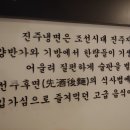 진주냉면은 조선시대 진주지
양반가와 기방에서 한량들이 기생
어울려 질펀하게 술판을 벌
선주후면(先酒後麵)의 식사법에
입가심으로 즐겨먹던 고급 음식이